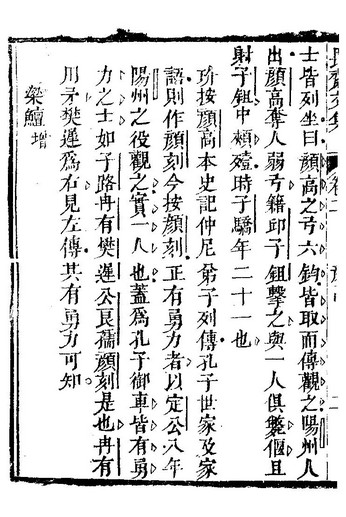 士皆列坐曰顏高之弓六鈞皆取而傳觀之陽州人
出顏高奪人弱弓籍邱子鉏擊之與一人俱斃偃且
射子鉏中頰殪時子驕年二十一也
玠按顏高本史記仲尼弟子列傳孔子世家及家
語則作顏刻今按顏刻正有勇力者以定公八年
陽州之役觀之實一人也蓋爲孔子御車皆有勇
力之士如子路冉有樊遲公良孺顏刻是也冉有
用矛樊遲爲右見左傳其有勇力可知
樂鱣增